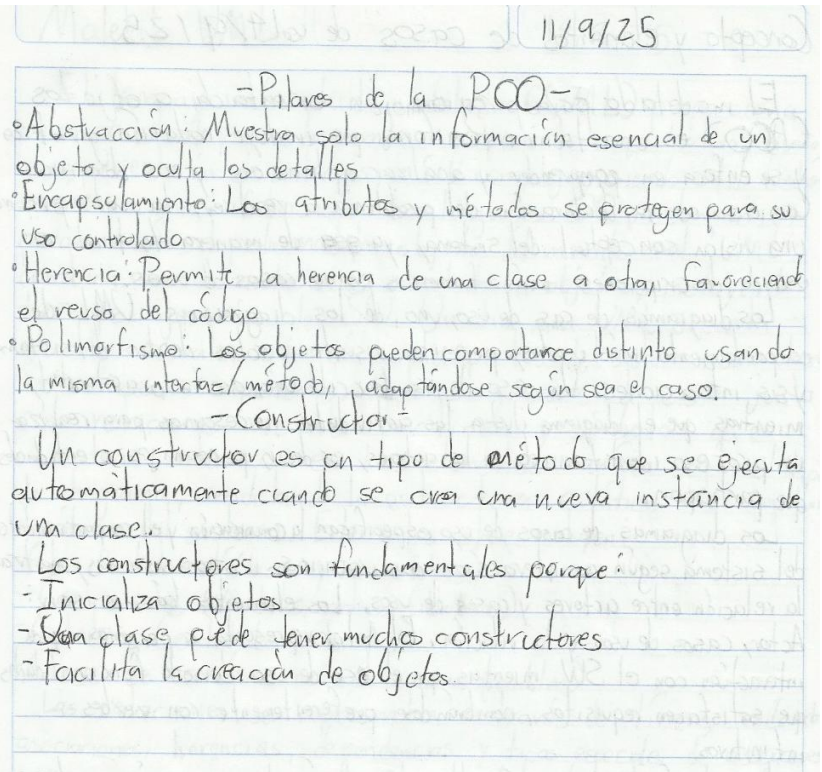 11/9/25
-Pilares de la POO-
•Abstracción: Muestra solo la información esencial de un
objeto y oculta los detalles
•Encapsulamiento: Los atributos y métodos se protegen para su
uso controlado
•Herencia: Permite la herencia de una clase a otra, favoreciendo
el reuso del código
•Polimorfismo: Los objetos pueden comportarce distinto usando
la misma interfaz/método, adaptándose según sea el caso.
-Constructor-
Un constructor es un tipo de método que se ejecuta
automáticamente cuando se crea una nueva instancia de
una clase.
Los constructores son fundamentales porque:
-Inicializa objetos
-Una clase puede tener muchos constructores
-Facilita la creación de objetos